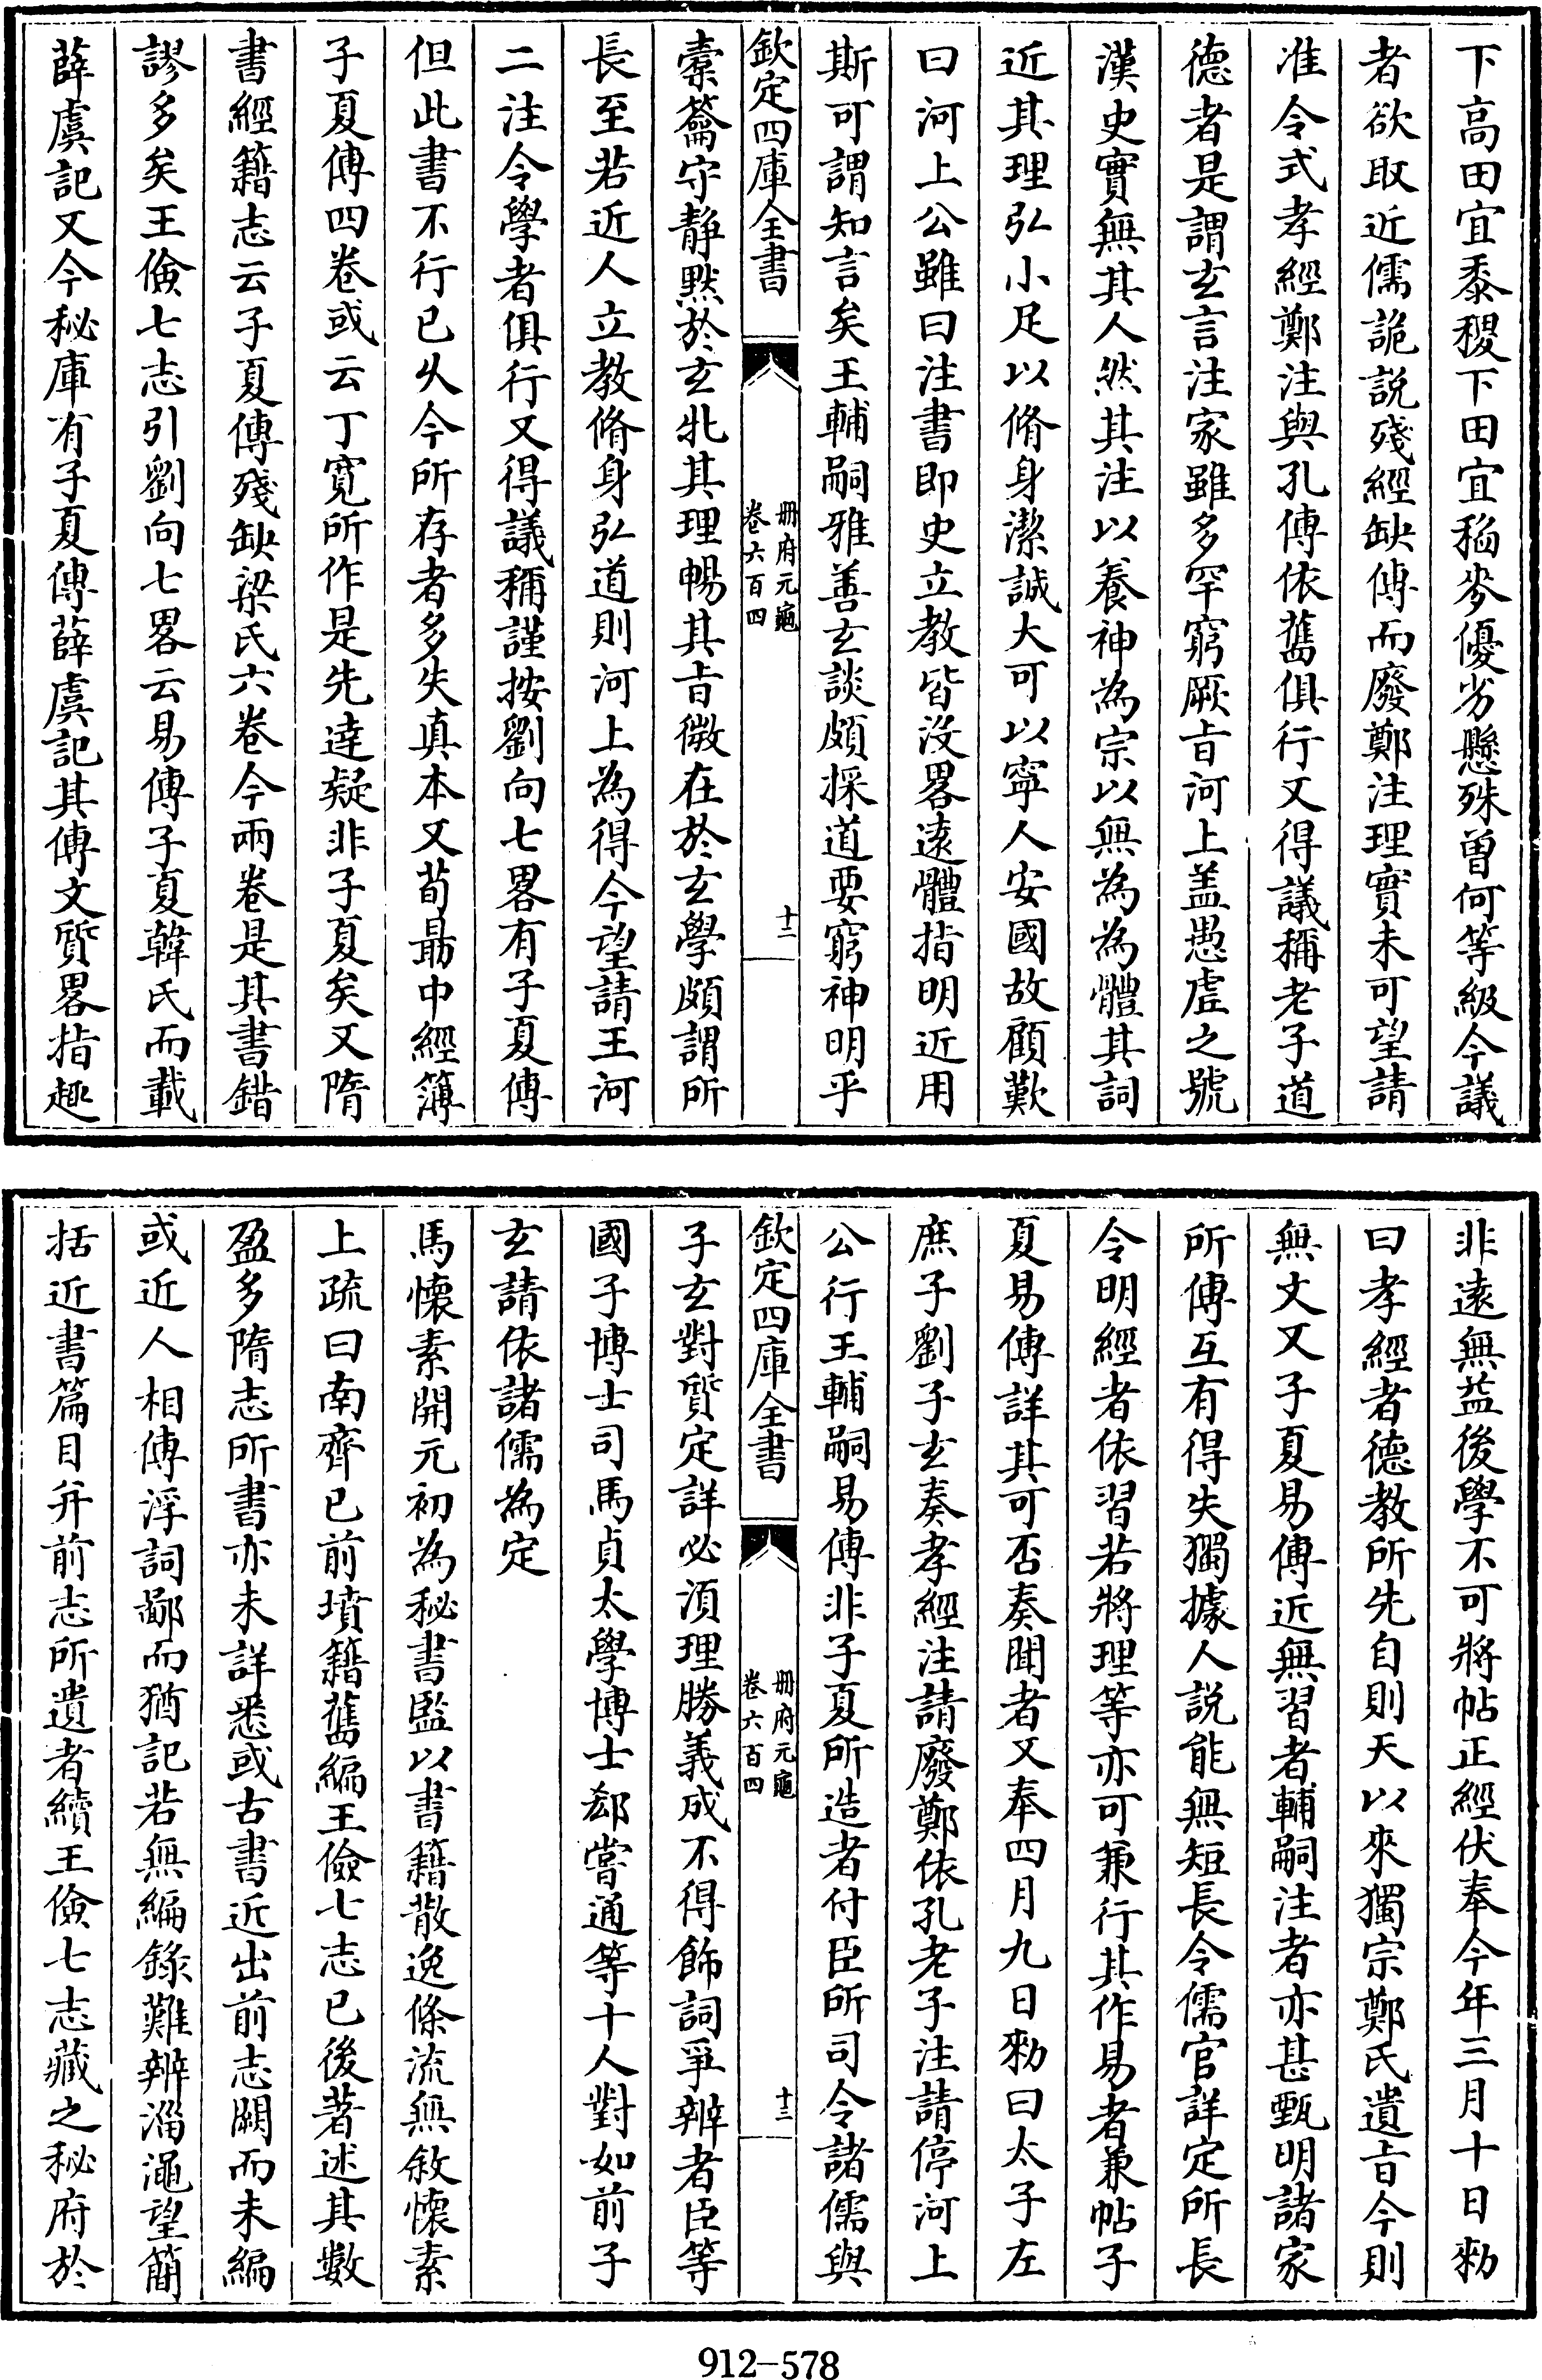 下高田宜黍稷下田宜稻麥優劣懸殊曽何等級今議
者欲取近儒詭説殘經缺傳而廢鄭注理實未可望請
准令式孝經鄭注與孔傳依舊俱行又得議稱老子道
德者是謂玄言注家雖多罕窮厥㫖河上盖愚虛之號
漢史實無其人然其注以養神為宗以無為為體其詞
近其理弘小足以脩身潔誠大可以寧人安國故顧歎
曰河上公雖曰注書即史立教皆沒畧逺體指明近用
斯可謂知言矣王輔嗣雅善玄談頗採道要窮神明乎
欽定四庫全書
冊府元龜
卷六百四
十二
橐籥守静黙於玄牝其理暢其㫖微在於玄學頗謂所
長至若近人立教脩身弘道則河上為得今望請王河
二注令學者俱行又得議稱謹按劉向七畧有子夏傳
但此書不行已乆今所存者多失真本又荀朂中經簿
子夏傳四卷或云丁寛所作是先達疑非子夏矣又隋
書經籍志云子夏傳殘缺梁氏六卷今兩卷是其書錯
謬多矣王儉七志引劉向七畧云易傳子夏韓氏而載
薛虞記又今秘庫有子夏傳薛虞記其傳文質畧指趣
非逺無益後學不可將帖正經伏奉今年三月十日勑
曰孝經者德教所先自則天以來獨宗鄭氏遺㫖今則
無文又子夏易傳近無習者輔嗣注者亦甚甄明諸家
所傳互有得失獨據人説能無短長令儒官詳定所長
令明經者依習若將理等亦可兼行其作易者兼帖子
夏易傳詳其可否奏聞者又奉四月九日勑曰太子左
庶子劉子玄奏孝經注請廢鄭依孔老子注請停河上
公行王輔嗣易傳非子夏所造者付臣所司令諸儒與
欽定四庫全書
冊府元龜
卷六百四
十三
子玄對質定詳必須理勝義成不得飾詞爭辨者臣等
國子博士司馬貞太學博士郄嘗通等十人對如前子
玄請依諸儒為定
馬懷素開元初為秘書監以書籍散逸條流無敘懷素
上疏曰南齊已前墳籍舊編王儉七志已後著述其數
盈多隋志所書亦未詳悉或古書近出前志闕而未編
或近人相傳浮詞鄙而猶記若無編錄難辨淄澠望簡
括近書篇目并前志所遺者續王儉七志藏之秘府於
912-578